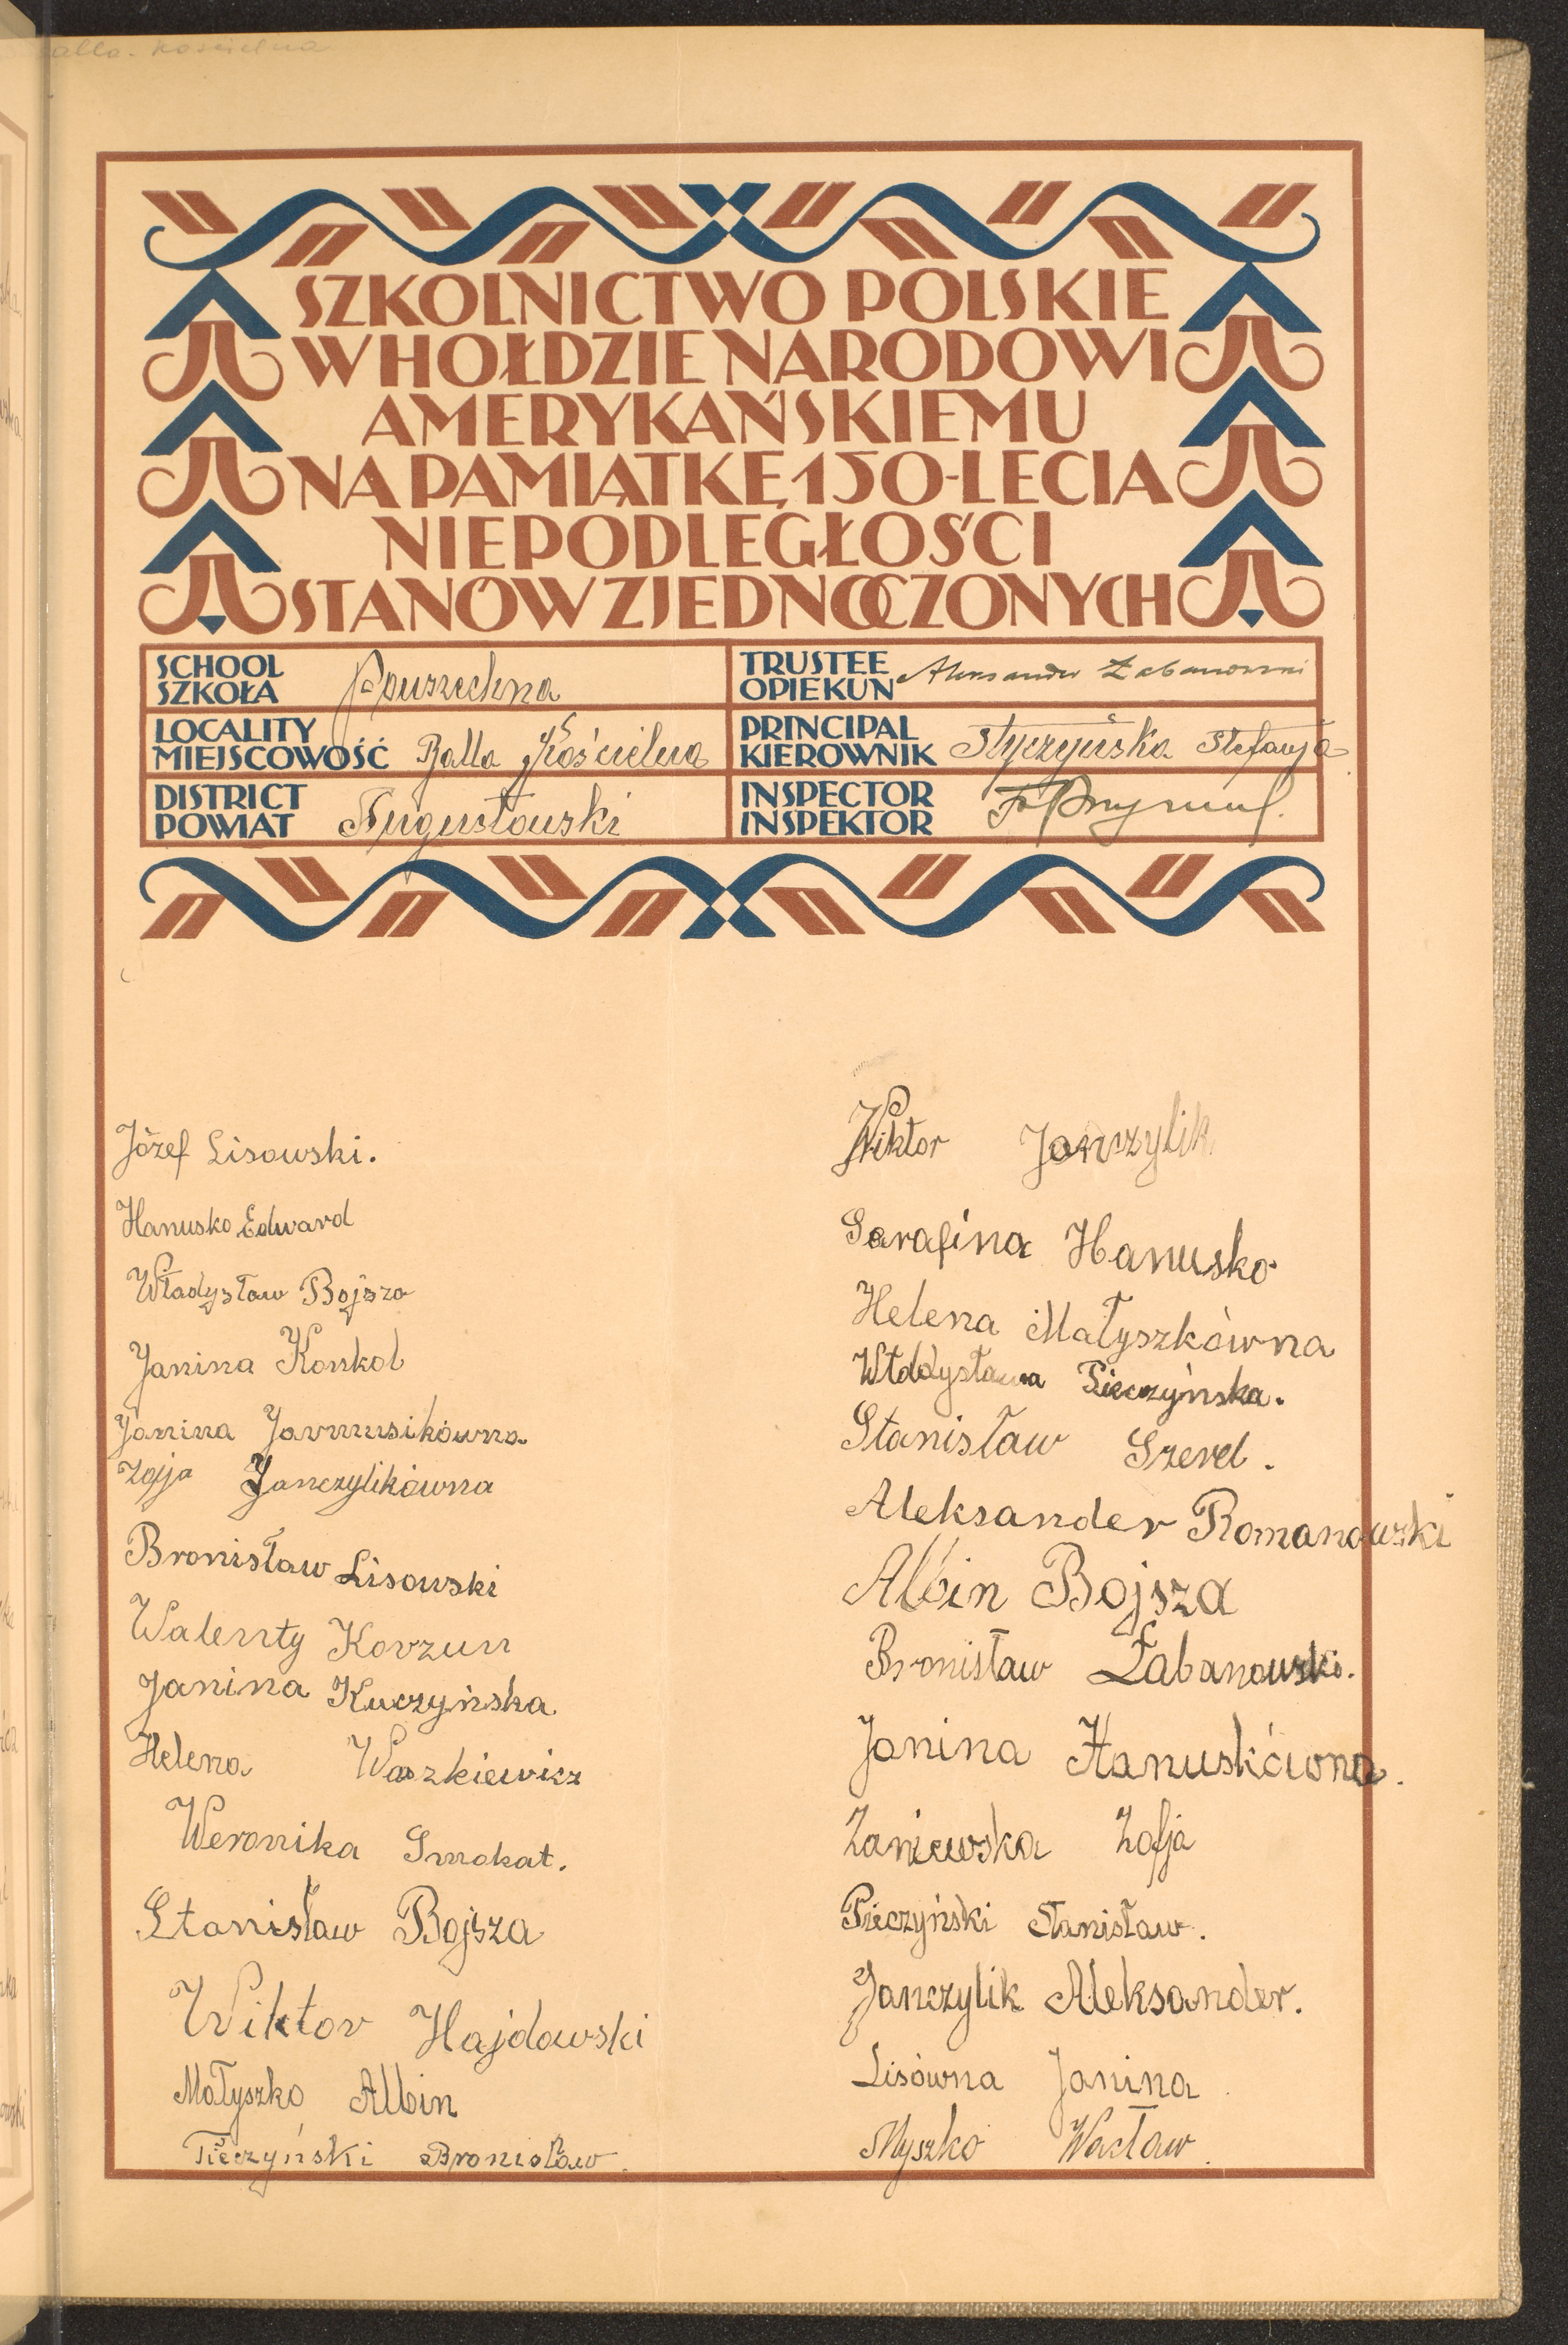 alla-Kościelna
SZKOLNICTWO POLSKIE
W HOŁDZIE NARODOWI
AMERYKAŃSKIEMU
NA PAMIĄTKĘ 150-LECIA
NIEPODLEGŁOŚCI
STANÓW ZJEDNOCZONYCH
SCHOOL
SZKOŁA Ppuszechna
LOCALITY
MIEJSCOWOŚĆ Balla Kościelna
DISTRICT
POWIAT Augustowski
TRUSTEE
OPIEKUN Aleksander Żabanowski
PRINCIPAL
KIEROWNIK Styczyńska Stefanja
INSPECTOR
INSPEKTOR
Józef Lisowski.
Hanusko Edward
Władysław Bojsza
Janina Konkol
Janina Jarmusikówna
Zofja Janczylikówna
Bronisław Lisowski
Walenty Korzun
Janina Kuczyńska
Helena Waszkiewicz
Weronika Smokat.
Stanisław Bojsza
Wiktor Hajdowski
Małyszko Albin
Pieczyński Bronisław.
Wiktor Janczylik
Serafina Hanusko
Helena Małyszkówna
Władysława Pieczyńska.
Stanisław Szered.
Aleksander Romanowski
Albin Bojsza
Bronisław Żabanowski.
Janina Hanuskówna.
Zaniewska Zofja
Pieczyński Stanisław.
Janczylik Aleksander.
Lisówna Janina
Myszko Wacław.